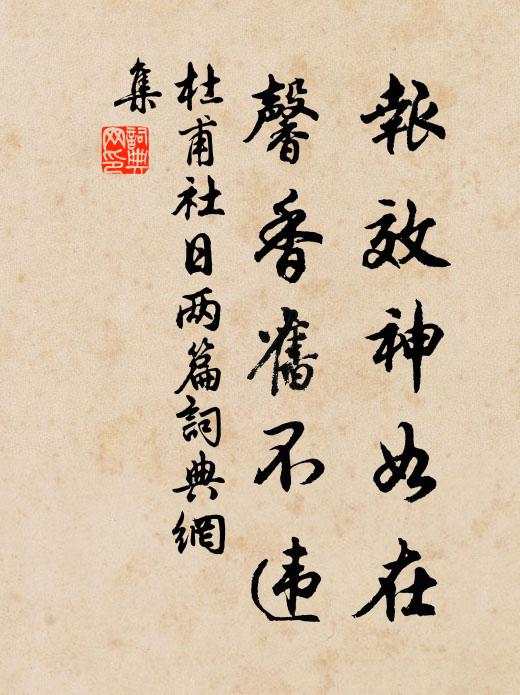 報效神如在
馨香舊不违
杜甫社日两篇詞典網
集
詞典
网印